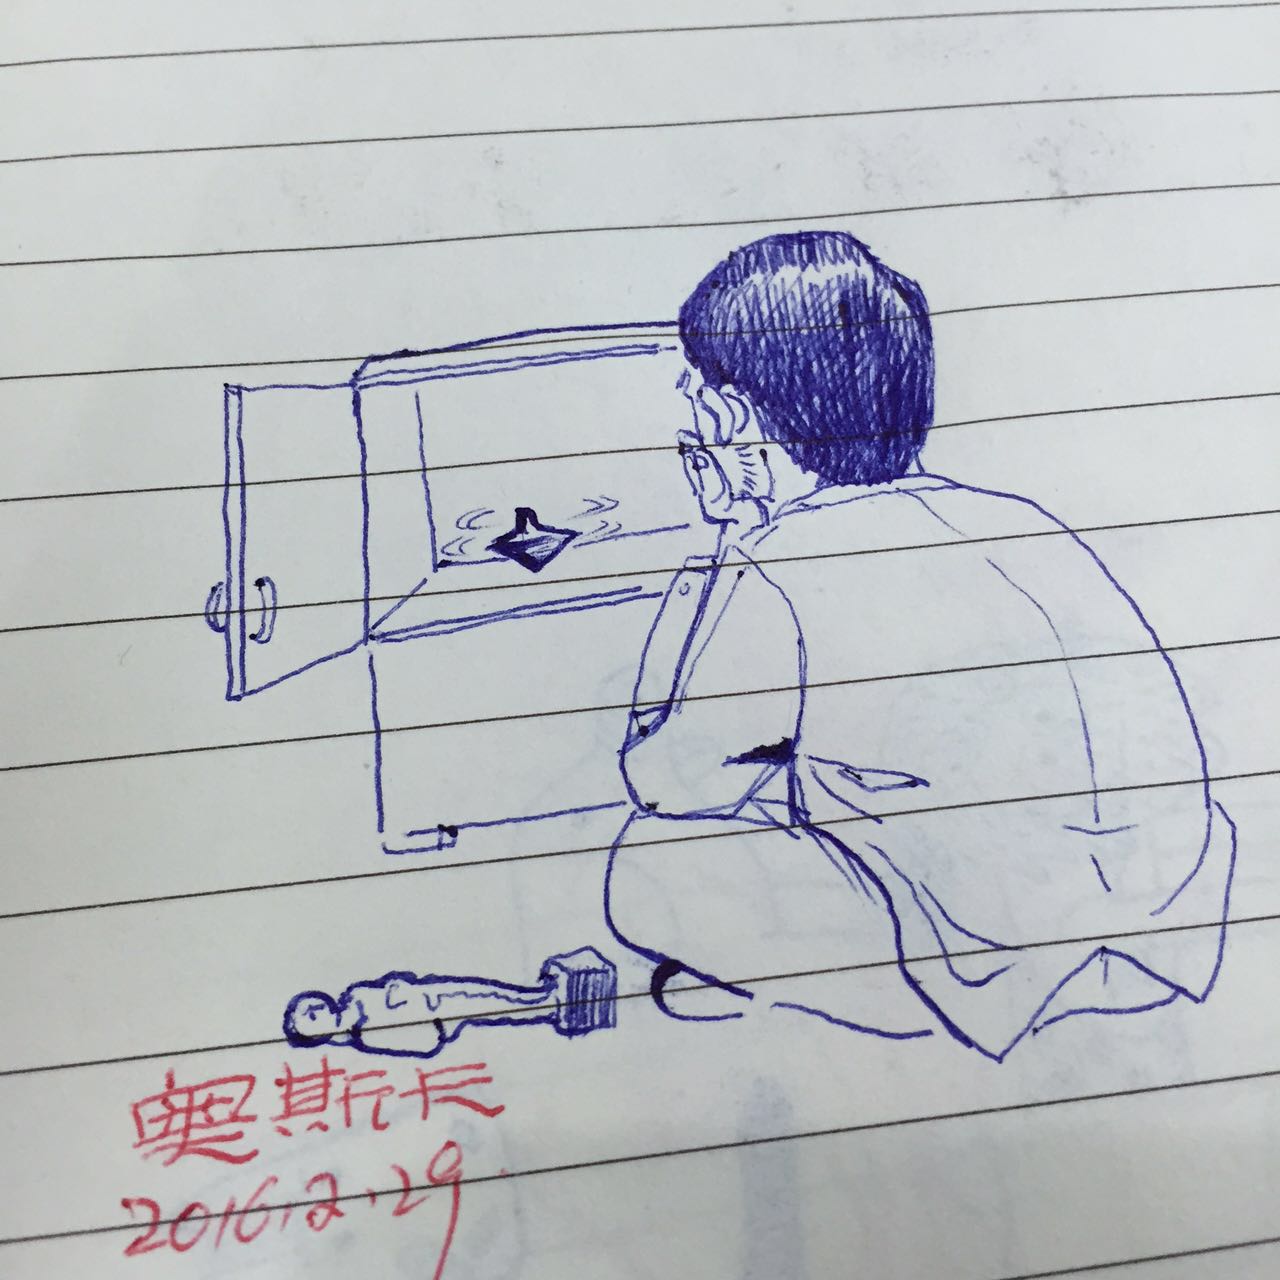 奥斯卡
2016.2.29